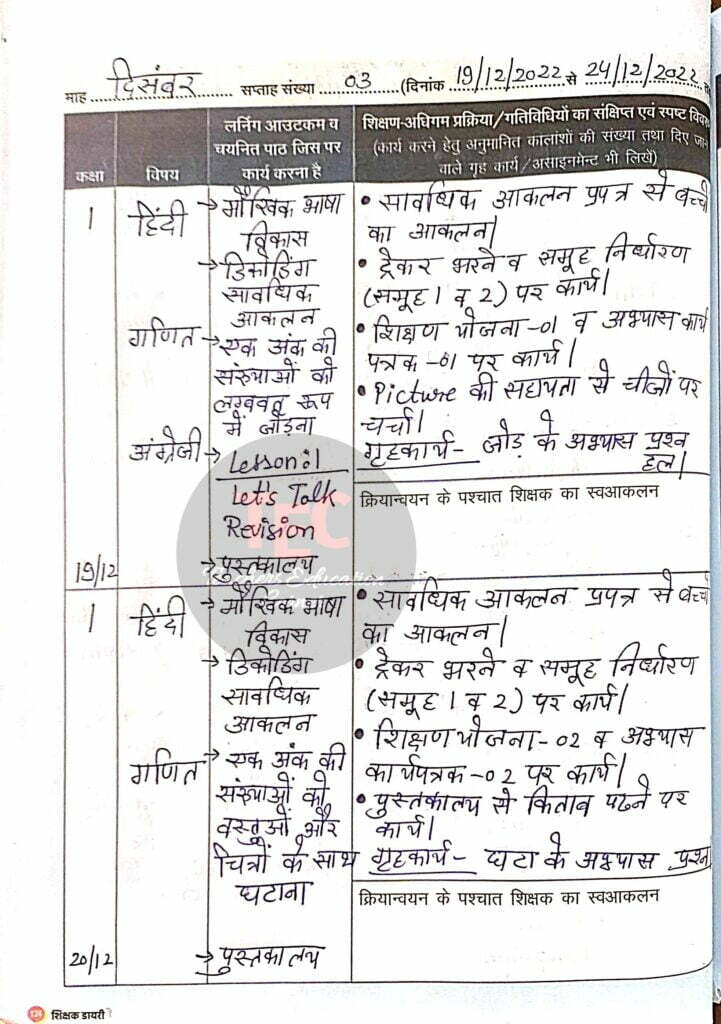 माह दिसंबर सप्ताह संख्या 03 (दिनांक 19/12/2022 से 24/12/2022
कक्षा विषय लर्निंग आउटकम व चयनित पाठ जिस पर कार्य करना है
शिक्षण-अधिगम प्रक्रिया/गतिविधियों का संक्षिप्त एवं स्पष्ट
(कार्य करने हेतु अनुमानित कालांशों की संख्या तथा दिए
वाले गृह कार्य/असाइनमेंट भी लिखें)
1
हिंदी
→ मौखिक भाषा
विकास
→ डिकोडिंग
सावधिक
आकलन
गणित
→ एक अंक की
संख्याओं को
लम्बवत् रूप
में जोड़ना
अंग्रेजी
→ Lesson:1
Let's Talk
Revision
→ पुस्तकालय
19/12
• सावधिक आकलन प्रपत्र से बच्चों
का आकलन।
• ट्रेकर भरने व समूह निर्धारण
(समूह 1 व 2) पर कार्य।
• शिक्षण योजना-01 व अभ्यास कार्य
पत्रक-01 पर कार्य।
• Picture की सहायता से चीजों पर
चर्चा।
गृहकार्य- जोड़ के अभ्यास प्रश्न
हल।
क्रियान्वयन के पश्चात शिक्षक का स्वआकलन
IEC
1
हिंदी
→ मौखिक भाषा
विकास
→ डिकोडिंग
सावधिक
आकलन
गणित
→ एक अंक की
संख्याओं की
वस्तुओं और
चित्रों के साथ
घटाना
→ पुस्तकालय
20/12
• सावधिक आकलन प्रपत्र से बच्चों
का आकलन।
• ट्रेकर भरने व समूह निर्धारण
(समूह 1 व 2) पर कार्य।
• शिक्षण योजना-02 व अभ्यास
कार्यपत्रक-02 पर कार्य।
• पुस्तकालय से किताब पढने पर
कार्य।
गृहकार्य- घटा के अभ्यास प्रश्न
क्रियान्वयन के पश्चात शिक्षक का स्वआकलन
शिक्षक डायरी